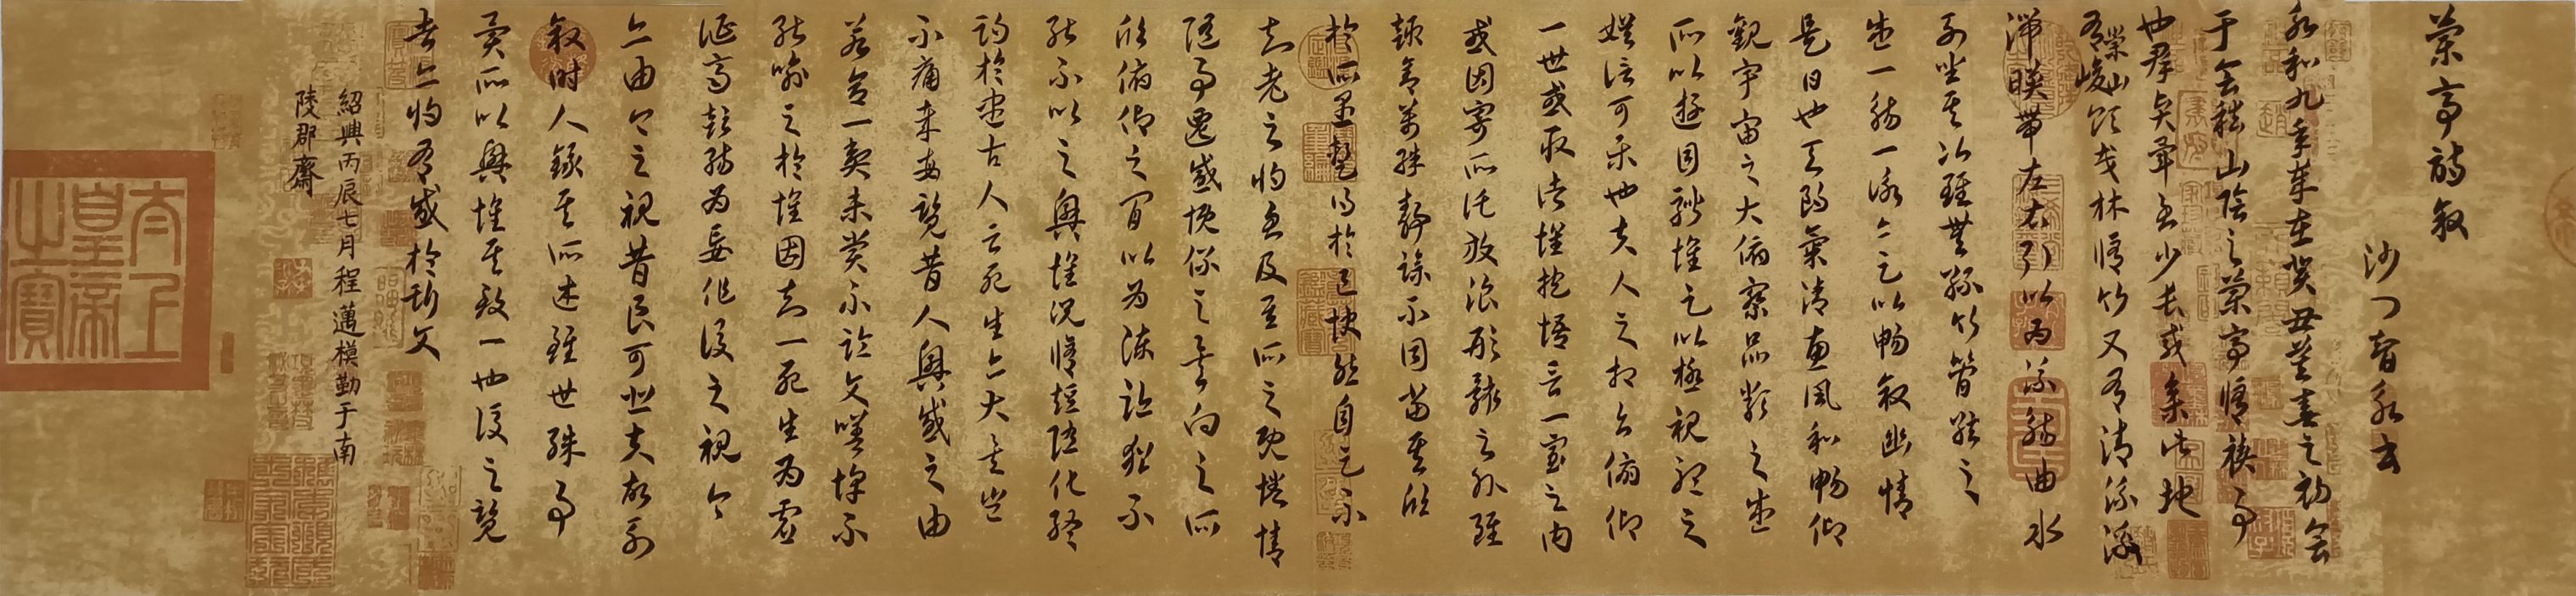 蘭亭詩敘
沙門智永書
永和九年歲在癸丑暮春之初會
于會稽山陰之蘭亭脩禊事
也群賢畢至少長咸集此地
有崇山峻領茂林脩竹又有清流激
湍暎帶左右引以為流觴曲水
列坐其次雖無絲竹管絃之
盛一觴一詠亦足以暢敘幽情
是日也天朗氣清惠風和暢仰
觀宇宙之大俯察品類之盛
所以遊目騁懷足以極視聽之
娛信可樂也夫人之相與俯仰
一世或取諸懷抱悟言一室之內
或因寄所託放浪形骸之外雖
趣舍萬殊靜躁不同當其欣
於所遇暫得於己快然自足不
知老之將至及其所之既惓情
隨事遷感慨係之矣向之所
欣俯仰之間以為陳迹猶不
能不以之興懷況脩短隨化終
期於盡古人云死生亦大矣豈
不痛哉每覽昔人興感之由
若合一契未嘗不臨文嗟悼不
能喻之於懷固知一死生為虛
誕齊彭殤為妄作後之視今
亦由今之視昔良可悲夫故列
敘時人錄其所述雖世殊事
異所以興懷其致一也後之覽
者亦將有感於斯文
紹興丙辰七月程邁模勒于南
陵郡齋
太上皇帝之寶